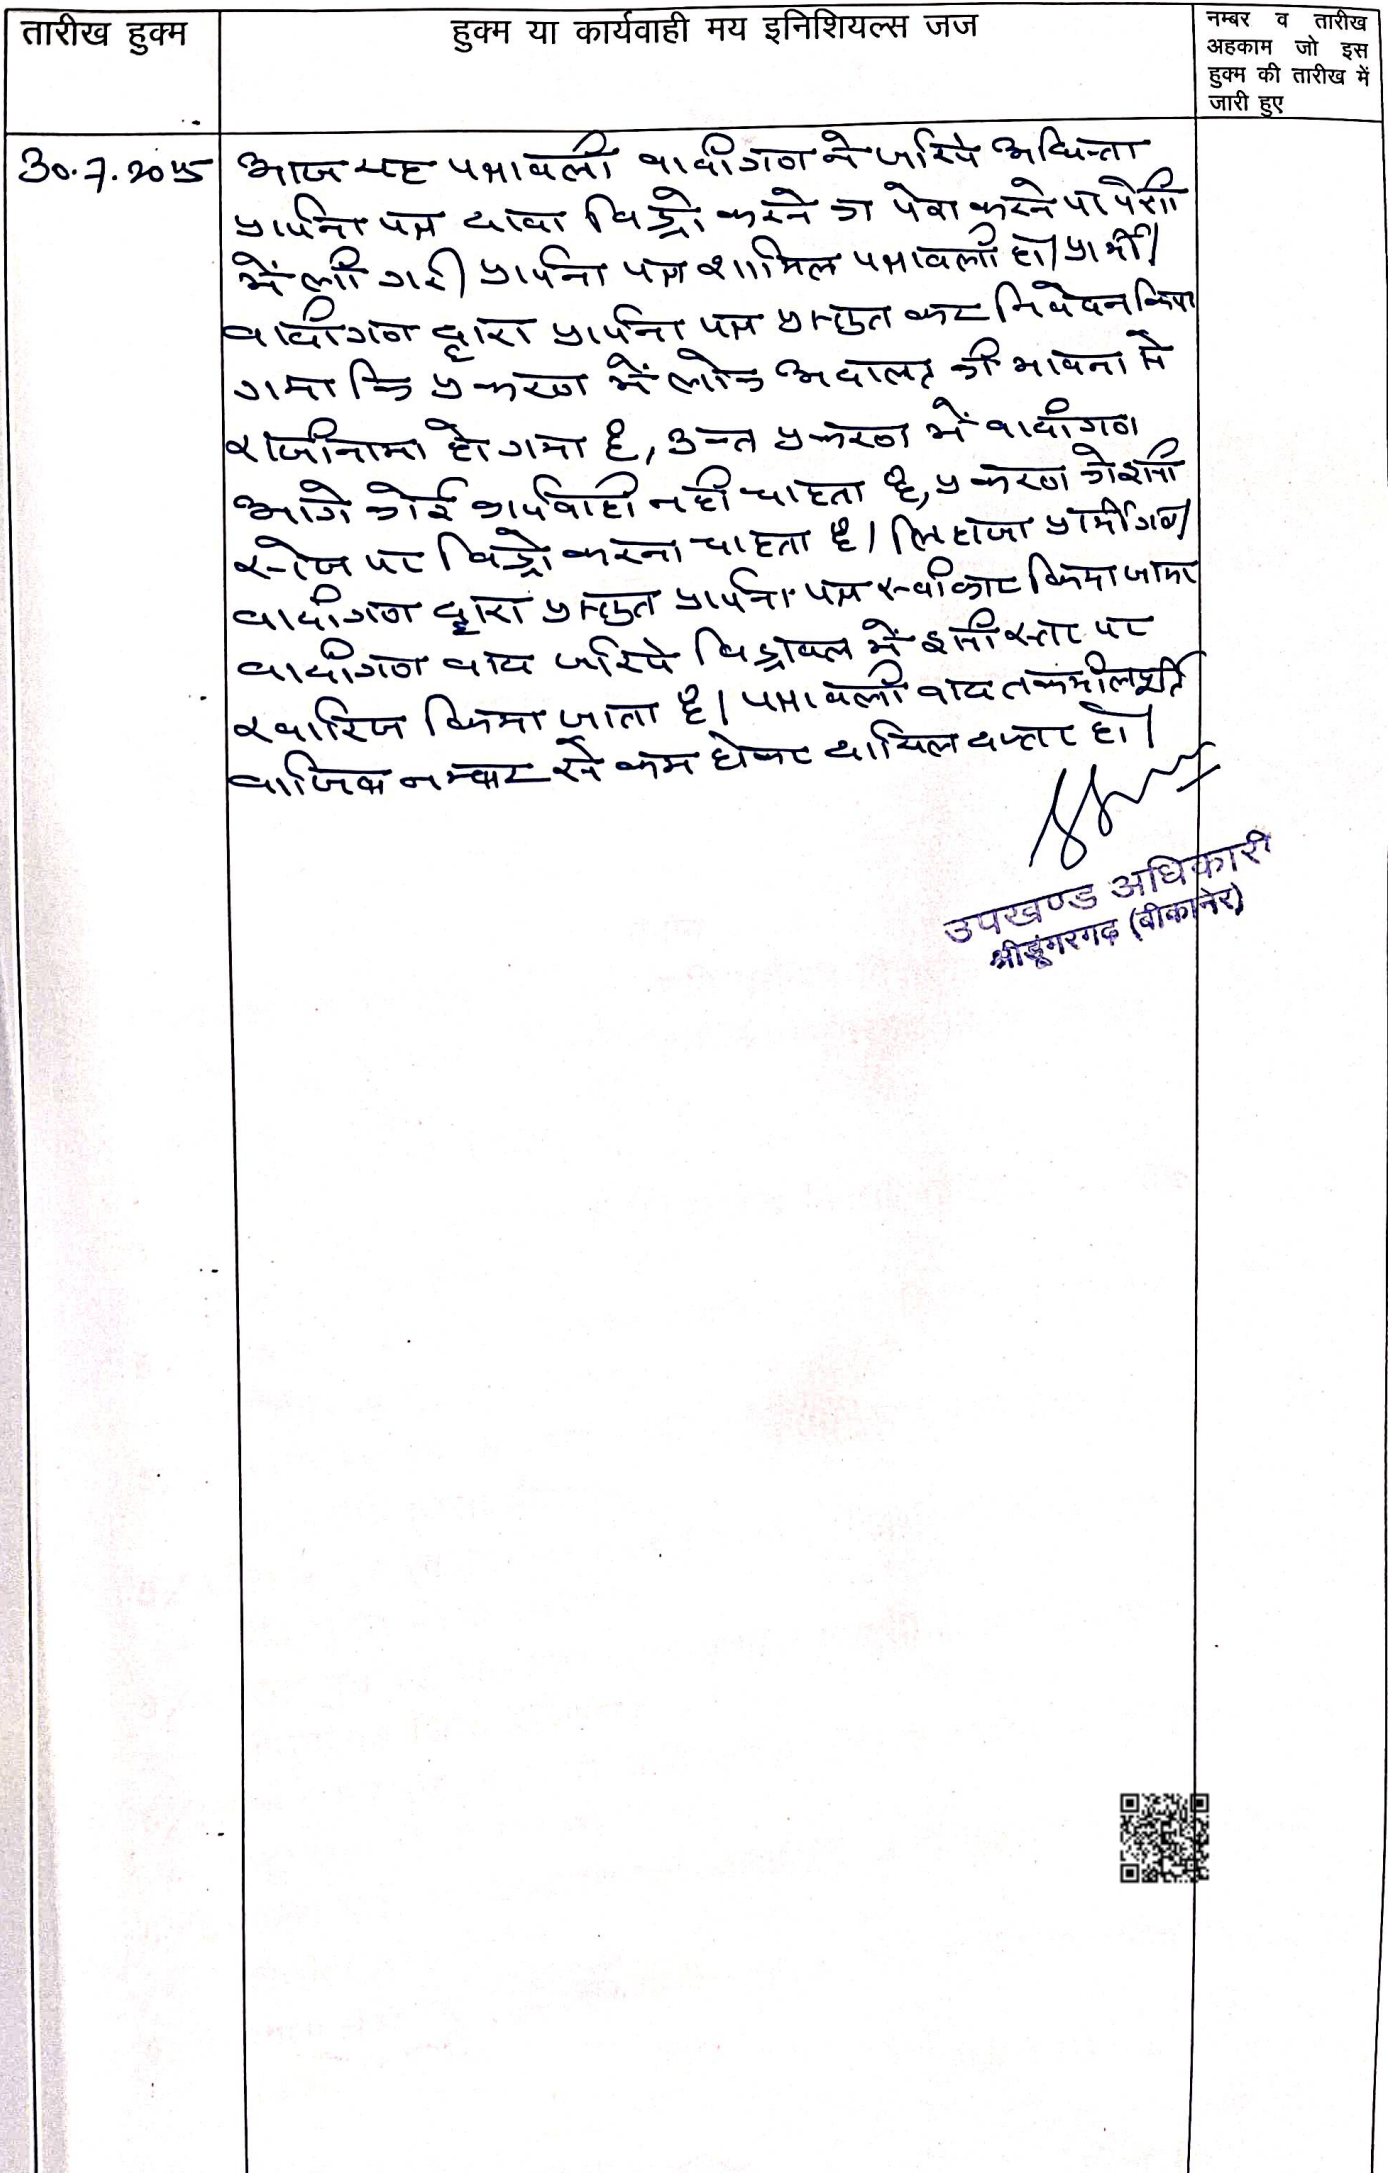 तारीख हुक्म
हुक्म या कार्यवाही मय इनिशियल्स जज
नम्बर व तारीख
अहकाम जो इस
हुक्म की तारीख में
जारी हुए
30.7.2025
आज यह पत्रावली वादीगण ने जरिये अधिवक्ता
प्रार्थना पत्र दावा विड्रो करने का पेश करने पर पेशी
में ली गई। प्रार्थना पत्र शामिल पत्रावली हो। प्रार्थी/
वादीगण द्वारा प्रार्थना पत्र प्रस्तुत कर निवेदन किया
गया कि प्रकरण में लोक अदालत की भावना से
राजीनामा हो गया है, उक्त प्रकरण में वादीगण
आगे कोई कार्यवाही नहीं चाहता है, प्रकरण को इसी
स्टेज पर विड्रो करना चाहता है। लिहाजा प्रार्थीगण/
वादीगण द्वारा प्रस्तुत प्रार्थना पत्र स्वीकार किया जाकर
वादीगण वाद जरिये विड्रावल में इसी स्तर पर
खारिज किया जाता है। पत्रावली बाद तकमील पूर्ति
वाजिब नम्बर से कम होकर दाखिल दफ्तर हो।
उपखण्ड अधिकारी
श्रीडूंगरगढ़ (बीकानेर)